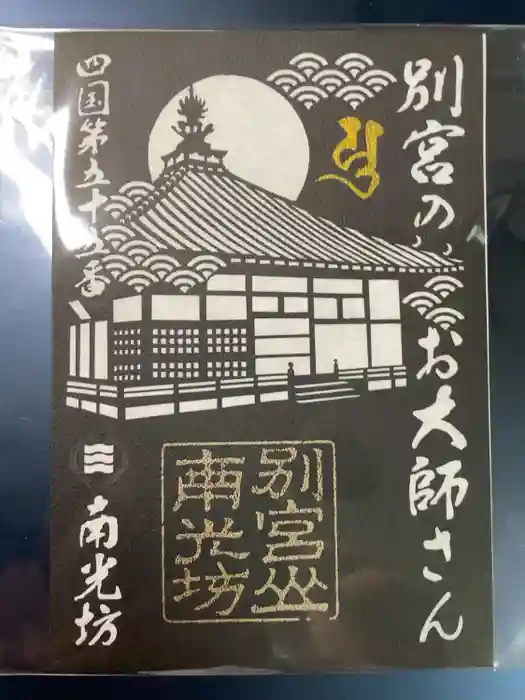 別宮の
お大師さん
四国第五十五番
南光坊
別宮山
南光坊